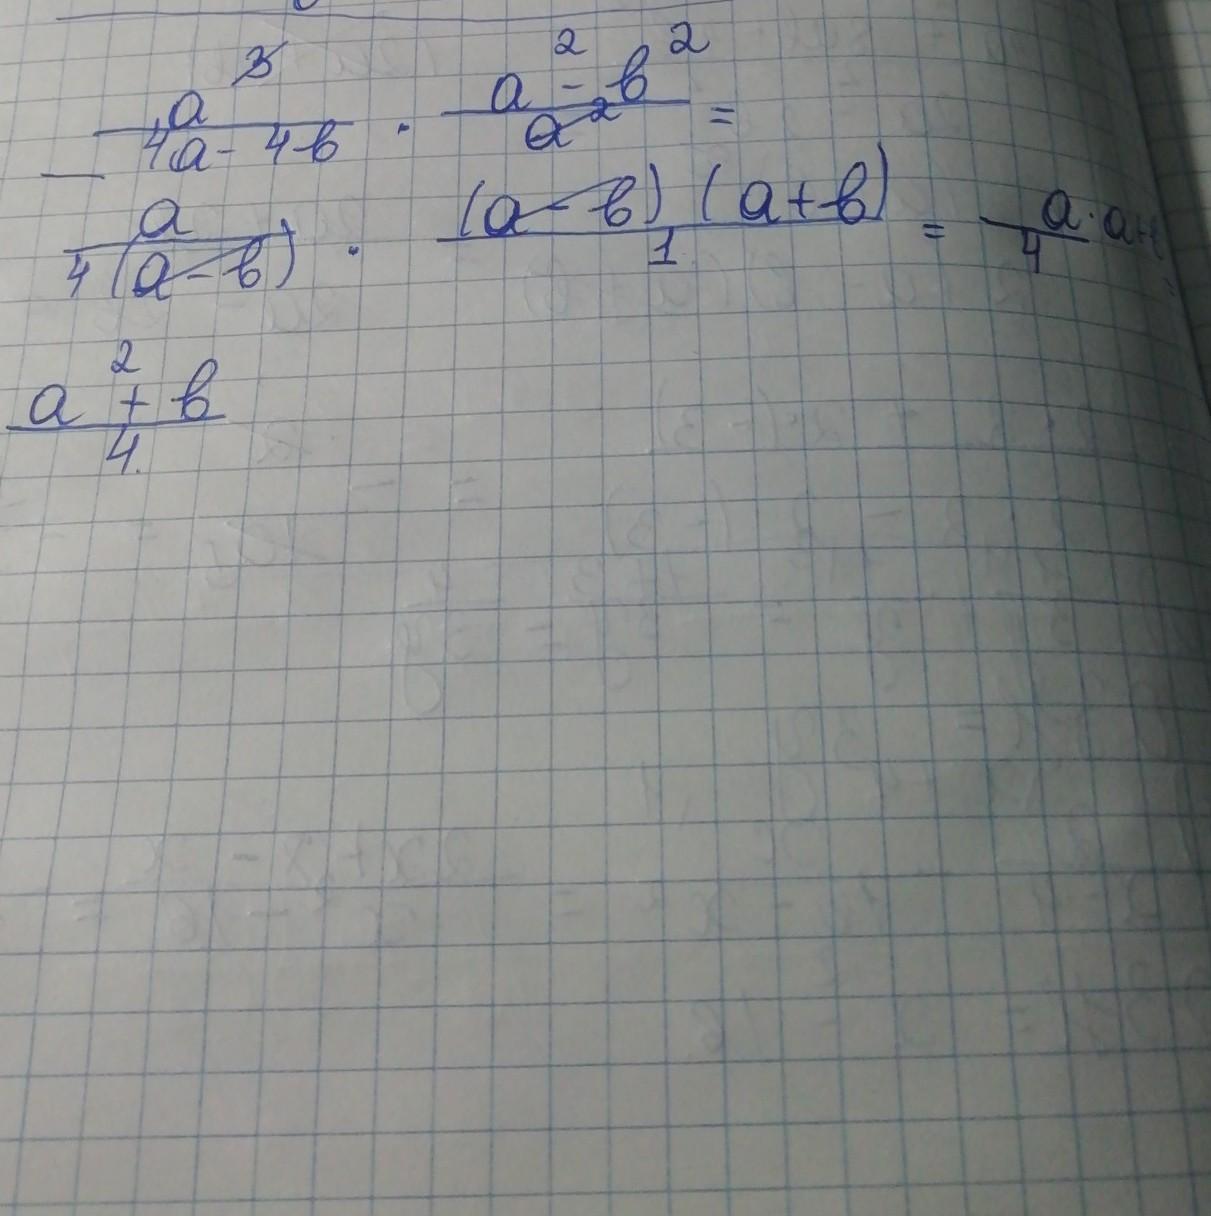 a³/(4a - 4b) · (a² - b²)/a² =
a/(4(a - b)) · (a - b)(a + b)/1 = a · a+b/4 =
(a² + b)/4.